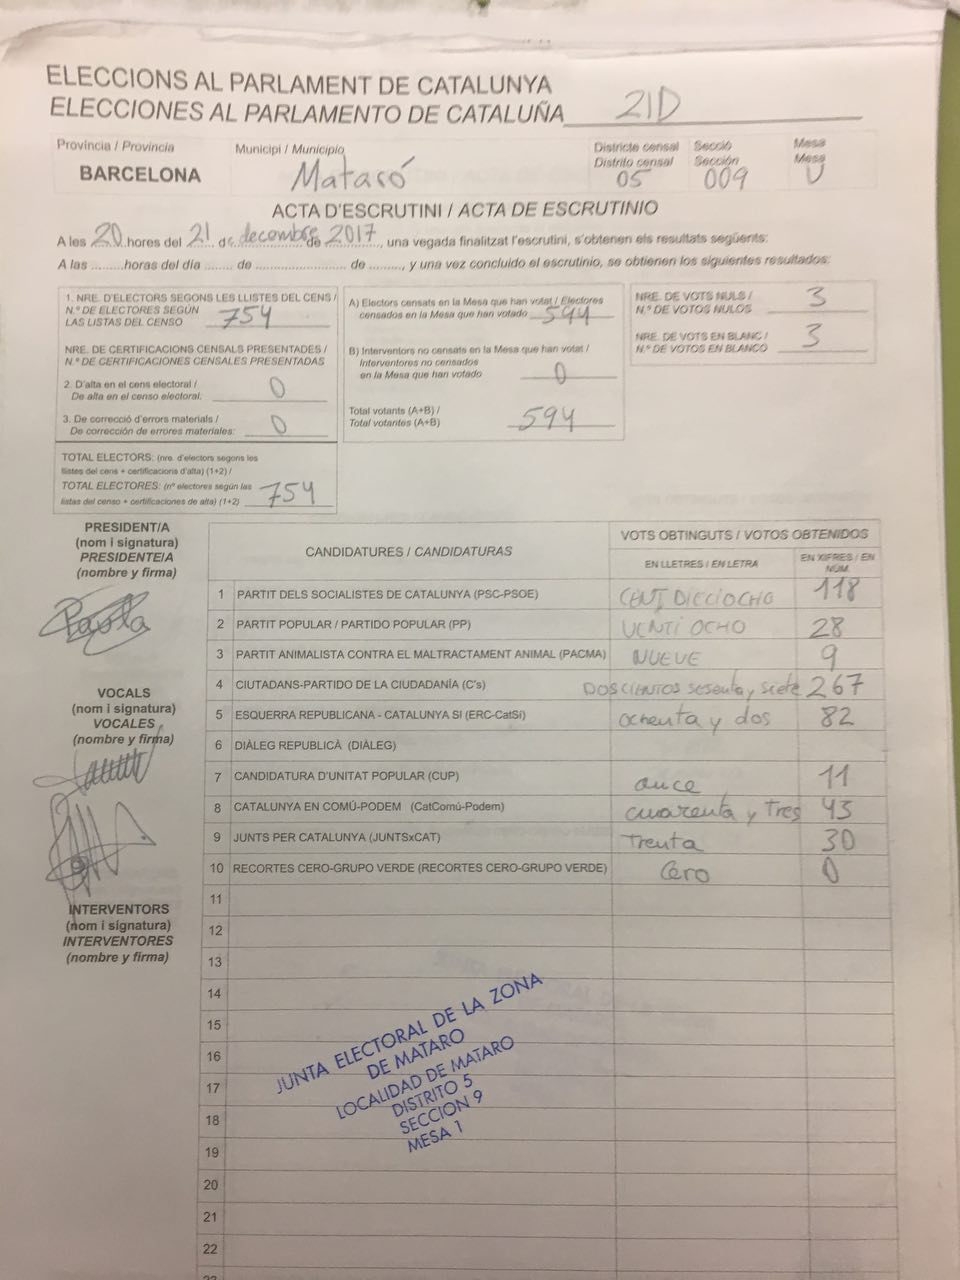 ELECCIONS AL PARLAMENT DE CATALUNYA
ELECCIONES AL PARLAMENTO DE CATALUÑA 21D
Província / Provincia
BARCELONA
Municipi / Municipio
Mataró
Districte censal
Distrito censal
05
Secció
Sección
009
Mesa
Mesa
U
ACTA D'ESCRUTINI / ACTA DE ESCRUTINIO
A les 20 hores del 21 de decembre de 2017, una vegada finalitzat l'escrutini, s'obtenen els resultats següents:
A las ........horas del día ....... de ....................... de ........., y una vez concluido el escrutinio, se obtienen los siguientes resultados:
1. NRE. D'ELECTORS SEGONS LES LLISTES DEL CENS /
N.º DE ELECTORES SEGÚN
LAS LISTAS DEL CENSO 754
NRE. DE CERTIFICACIONS CENSALS PRESENTADES /
N.º DE CERTIFICACIONES CENSALES PRESENTADAS
2. D'alta en el cens electoral /
De alta en el censo electoral: 0
3. De correcció d'errors materials /
De corrección de errores materiales: 0
TOTAL ELECTORS: (nre. d'electors segons les
llistes del cens + certificacions d'alta) (1+2) /
TOTAL ELECTORES: (nº electores según las
listas del censo + certificaciones de alta) (1+2) 754
A) Electors censats en la Mesa que han votat / Electores
censados en la Mesa que han votado 594
B) Interventors no censats en la Mesa que han votat /
Interventores no censados
en la Mesa que han votado 0
Total votants (A+B) /
Total votantes (A+B) 594
NRE. DE VOTS NULS /
N.º DE VOTOS NULOS 3
NRE. DE VOTS EN BLANC /
N.º DE VOTOS EN BLANCO 3
PRESIDENT/A
(nom i signatura)
PRESIDENTE/A
(nombre y firma)
Paola
VOCALS
(nom i signatura)
VOCALES
(nombre y firma)
INTERVENTORS
(nom i signatura)
INTERVENTORES
(nombre y firma)
CANDIDATURES / CANDIDATURAS
VOTS OBTINGUTS / VOTOS OBTENIDOS
EN LLETRES / EN LETRA
EN XIFRES / EN
NÚM.
1 PARTIT DELS SOCIALISTES DE CATALUNYA (PSC-PSOE) CENT DIECIOCHO 118
2 PARTIT POPULAR / PARTIDO POPULAR (PP) VENTI OCHO 28
3 PARTIT ANIMALISTA CONTRA EL MALTRACTAMENT ANIMAL (PACMA) NUEVE 9
4 CIUTADANS-PARTIDO DE LA CIUDADANÍA (C's) DOSCIENTOS sesenta y siete 267
5 ESQUERRA REPUBLICANA - CATALUNYA SI (ERC-CatSí) ochenta y dos 82
6 DIÀLEG REPUBLICÀ (DIÀLEG)
7 CANDIDATURA D'UNITAT POPULAR (CUP) once 11
8 CATALUNYA EN COMÚ-PODEM (CatComú-Podem) cuarenta y Tres 43
9 JUNTS PER CATALUNYA (JUNTSxCAT) Trenta 30
10 RECORTES CERO-GRUPO VERDE (RECORTES CERO-GRUPO VERDE) Cero 0
11
12
13
14
15
16
17
18
19
20
21
22
23
JUNTA ELECTORAL DE LA ZONA
DE MATARO
LOCALIDAD DE MATARO
DISTRITO 5
SECCION 9
MESA 1